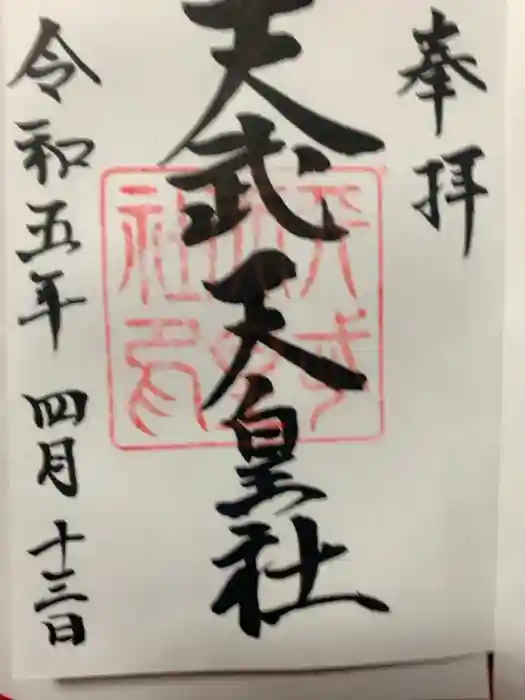 奉拝
天武天皇社
令和五年 四月 十三日
天武天皇社印